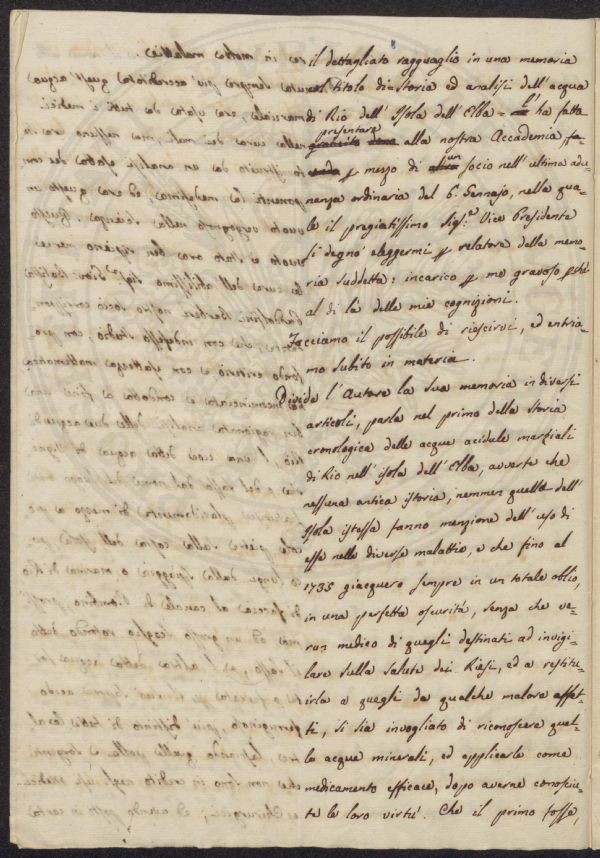 il dettagliato ragguaglio in una memoria
col titolo di = storia ed analisi dell'acqua
di Rio dell'Isola dell'Elba = l' ha fatta
presentare alla nostra Accademia
p mezzo di un socio nell'ultima adu=
nanza ordinaria del 6. Gennajo, nella qua=
le il pregiatissimo Sig:e Vice Presidente
si degnò eleggermi p relatore della memo=
ria suddetta: incarico p me gravoso, p chè
al di là delle mie cognizioni.
Facciamo il possibile di riescirvi, ed entria=
mo subito in materia.
Divide l'Autore la sua memoria in diversi
articoli, parla nel primo della storia
cronologica delle acque acidule marziali
di Rio nell'isola dell'Elba, avverte che
nessuna antica istoria, nemmen quella dell'
Isola istessa fanno menzione dell'uso di
esse nelle diverse malattie, e che fino al
1735 giacquero sempre in un totale oblio,
in una perfetta oscurità, senza che ve=
run medico di quegli destinati ad invigi=
lare sulla salute dei Riesi, ed a restitu=
irla a quegli da qualche malore affet=
ti, si sia invogliato di riconoscere quel=
le acque minerali, ed applicarle come
medicamento efficace, dopo averne conosciu=
te le loro virtù. Che il primo fosse,